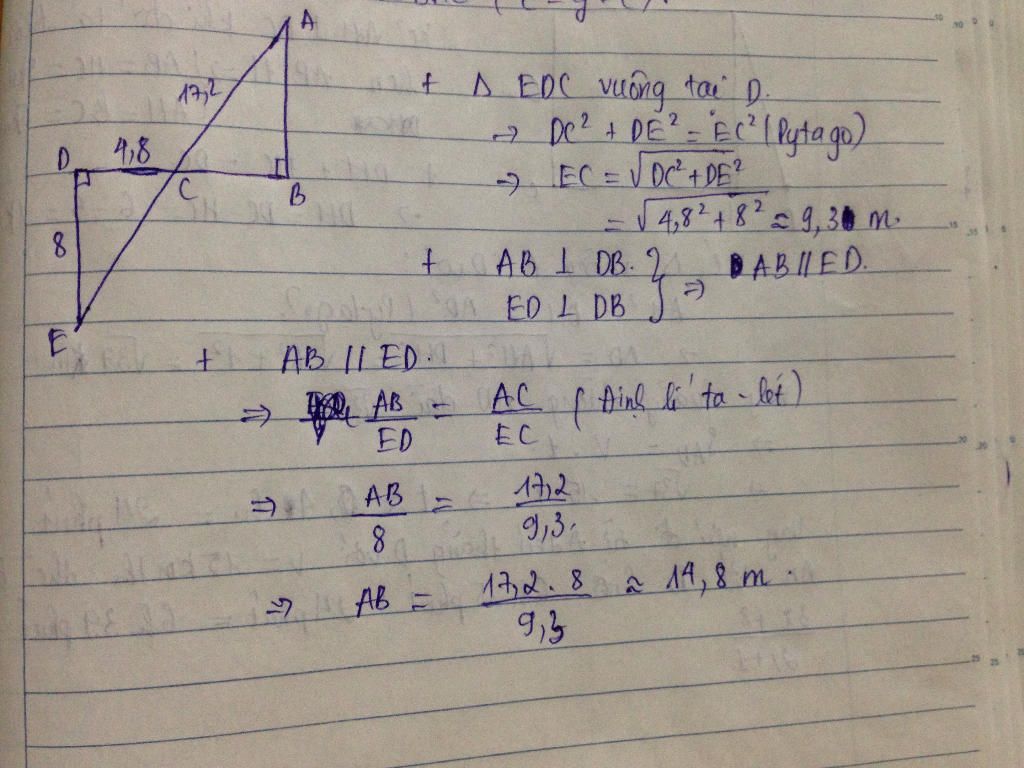 A
17,2
D
4,8
C
B
8
E
+ Δ EDC vuông tại D.
→ DC² + DE² = EC² (Pytago)
→ EC = √DC²+DE²
= √4,8²+8² ≈ 9,3 m.
+ AB ⊥ DB.
ED ⊥ DB } ⇒ AB // ED.
+ AB // ED.
⇒ AB/ED = AC/EC (Định lí ta-lét)
⇒ AB/8 = 17,2/9,3
⇒ AB = 17,2 . 8/9,3 ≈ 14,8 m.